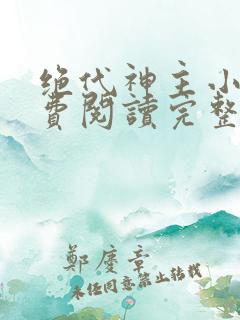 绝代神主小
費閱讀完整
鄭慶章
未经同意禁止转载